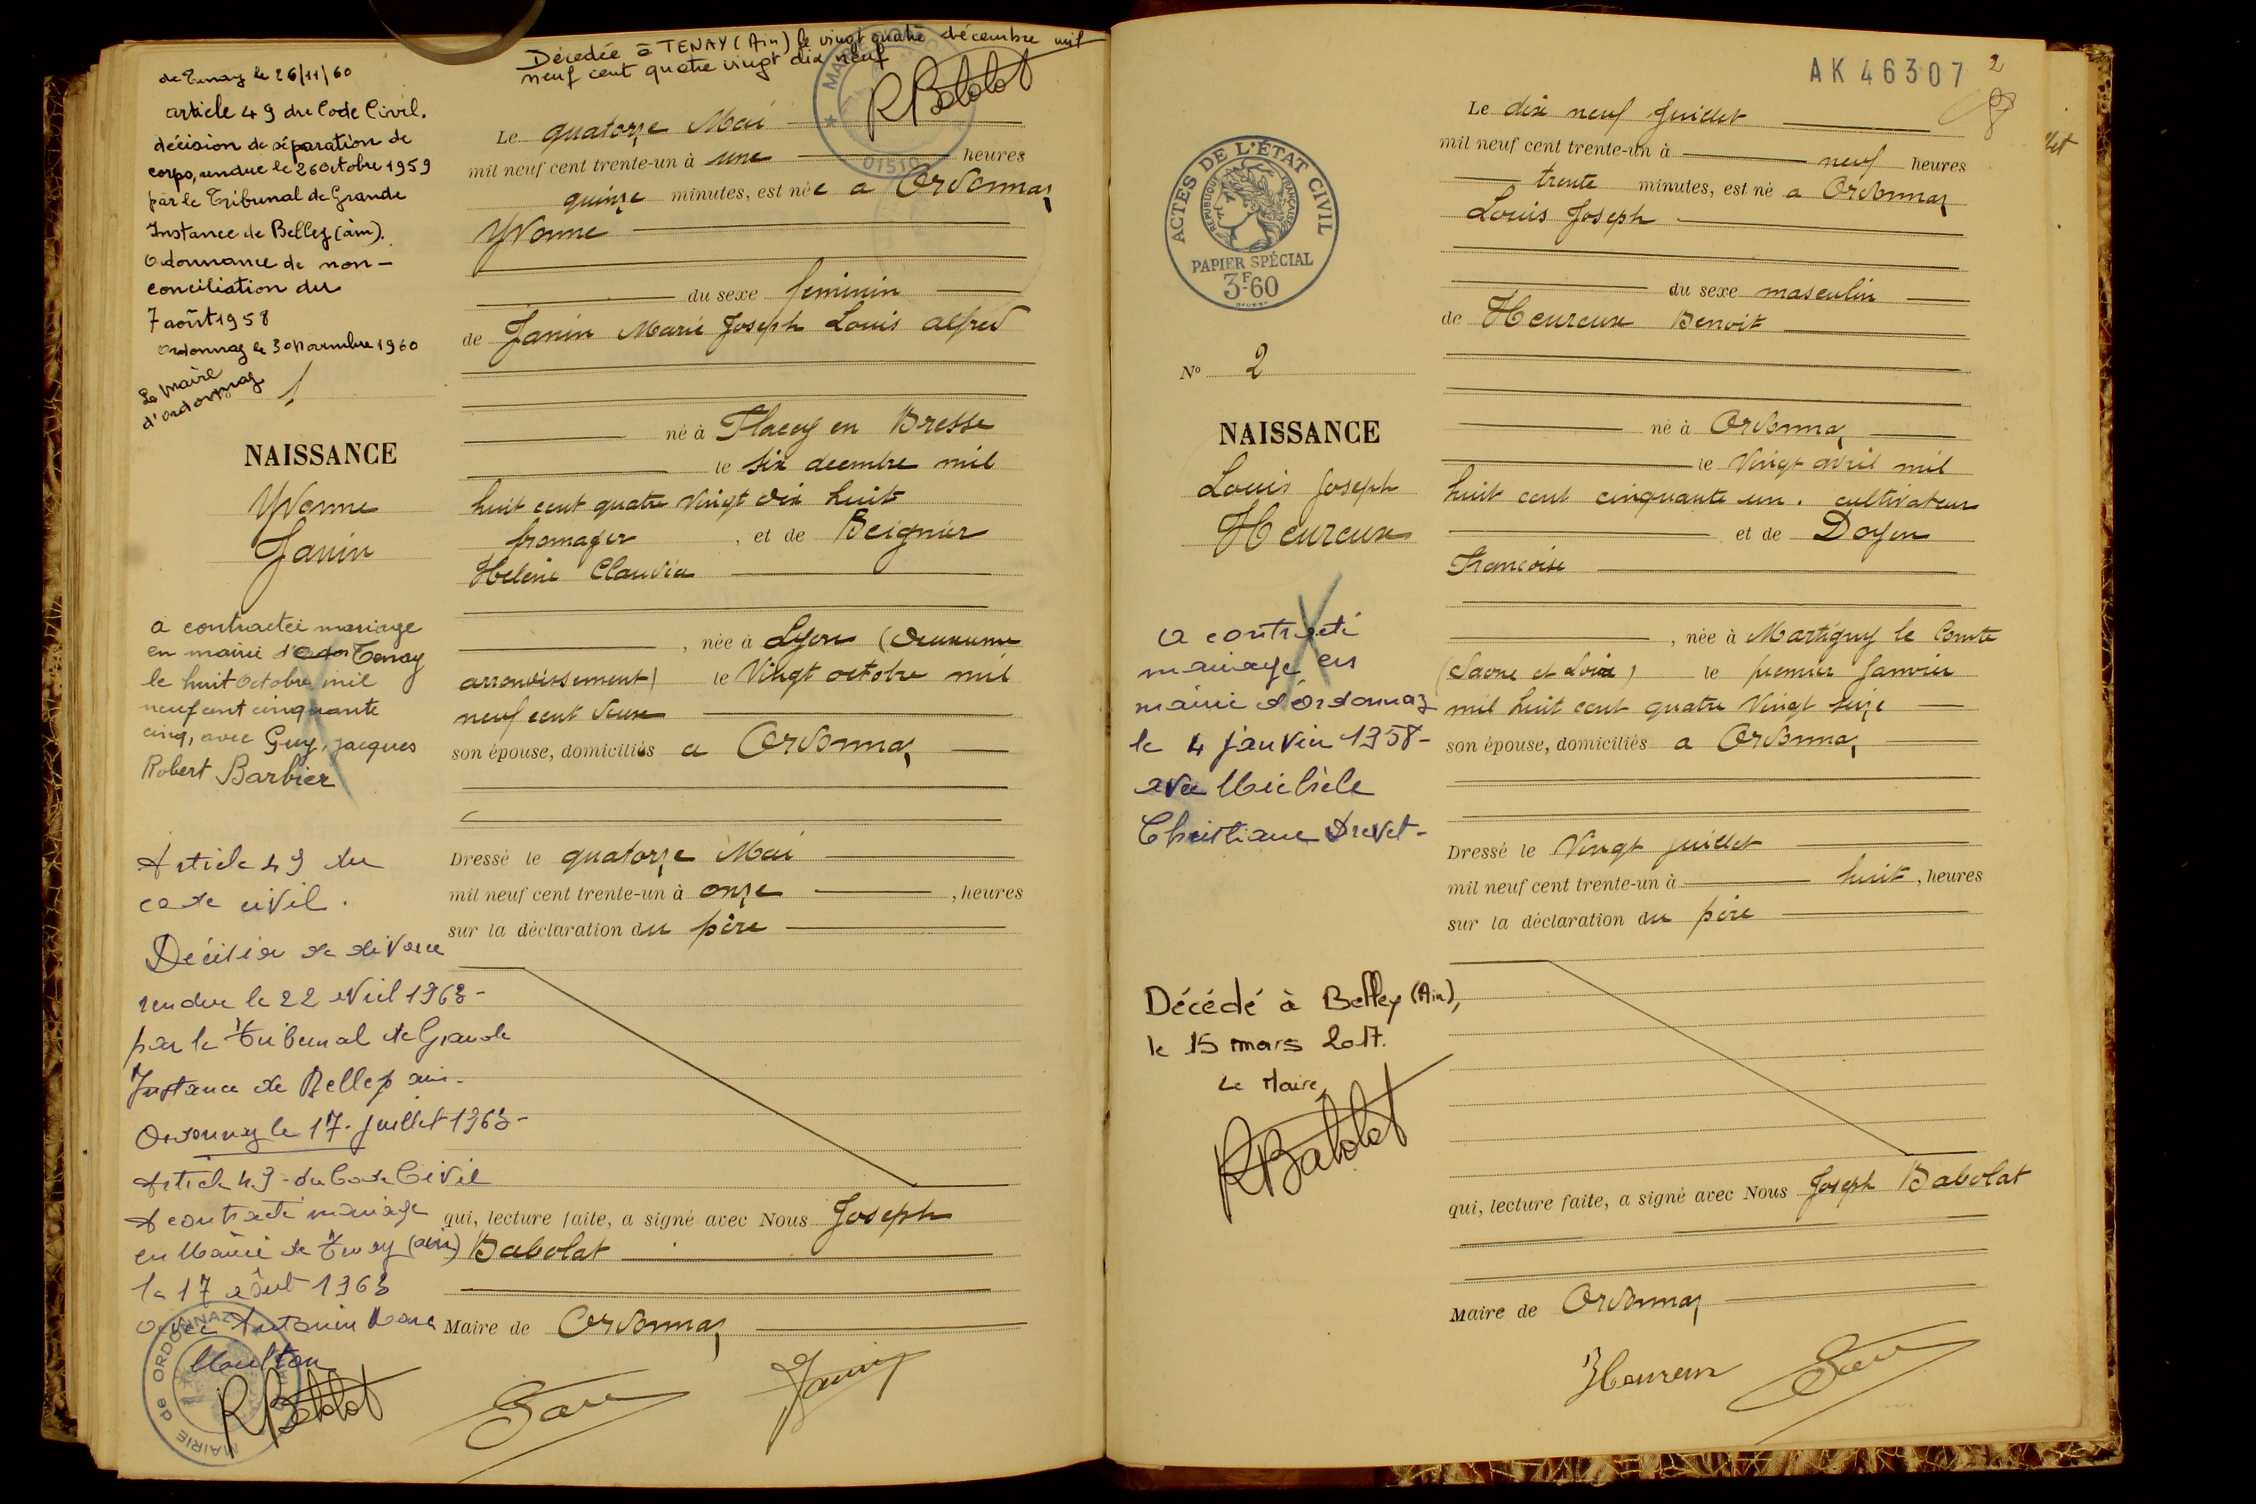 Décédée à TENAY (Ain) le vingt quatre décembre mil
neuf cent quatre vingt dix neuf
RBabolat
de Tenay le 26/11/60
article 49 du Code Civil.
décision de séparation de
corps, rendue le 26 octobre 1959
par le Tribunal de Grande
Instance de Belley (ain).
Ordonnance de non-
conciliation du
7 août 1958
Ordonnaz le 30 novembre 1960
Le maire
d'ordonnaz
1
NAISSANCE
Yvonne
Janin
a contractée mariage
en mairie Tenay
le huit octobre mil
neuf cent cinquante
cinq, avec Guy, jacques
Robert Barbier
Article 49 du
code civil.
Décision de divorce
rendue le 22 avril 1963-
par le Tribunal de Grande
Instance de Belley ain-
Ordonnaz le 17-juillet 1963-
Article 49-du Code Civil
A contracté mariage
en Mairie de Tenay (ain)
le 17 août 1963
avec Antonin
MAIRIE de ORDONNAZ
RBabolat
Le quatorze Mai
mil neuf cent trente-un à une heures
quinze minutes, est née a Ordonnaz
Yvonne
du sexe feminin
de Janin Marie Joseph Louis alfred
né à Flacey en Bresse
le six decembre mil
huit cent quatre Vingt dix huit
fromager, et de Beignier
Hélène Claudia
, née à Lyon (deuxieme
arrondissement) le Vingt octobre mil
neuf cent deux
son épouse, domiciliés a Ordonnaz
Dressé le quatorze Mai
mil neuf cent trente-un à onze, heures
sur la déclaration du père
qui, lecture faite, a signé avec Nous Joseph
Babolat
Maire de Ordonnaz
Janin
AK 46307
2
ACTES DE L'ÉTAT CIVIL
RÉPUBLIQUE FRANÇAISE
PAPIER SPÉCIAL
3F60
N° 2
NAISSANCE
Louis Joseph
Heureux
a contracté
mariage en
mairie d'Ordonnaz
le 4 janvier 1958-
avec Michèle
Christiane Drevet-
Décédé à Belley (Ain),
le 15 mars 2017.
Le Maire,
RBabolat
Le dix neuf Juillet
mil neuf cent trente-un à neuf heures
trente minutes, est né a Ordonnaz
Louis Joseph
du sexe masculin
de Heureux Benoit
né à Ordonnaz
le Vingt avril mil
huit cent cinquante un. cultivateur
et de Doyen
Francoise
, née à Martigny le Comte
(Saone et Loire) le premier Janvier
mil huit cent quatre Vingt seize
son épouse, domiciliés a Ordonnaz
Dressé le Vingt juillet
mil neuf cent trente-un à huit, heures
sur la déclaration du père
qui, lecture faite, a signé avec Nous Joseph Babolat
Maire de Ordonnaz
Heureux